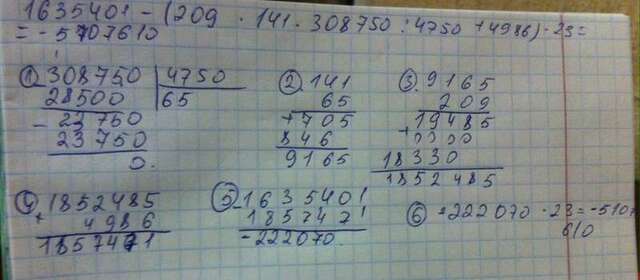 1635401 - (209 · 141 · 308750 : 4750 + 4986) · 23 =
= - 5107610
① 308750 | 4750
28500 | 65
- 23750
23750
0.
② · 141
65
+ 705
846
9165
③ · 9165
209
19485
+ 0000
18330
1852485
④ 1852485
+ 4986
1857471
⑤ - 1635401
1857471
- 222070.
⑥ -222070 · 23 = -5107
610